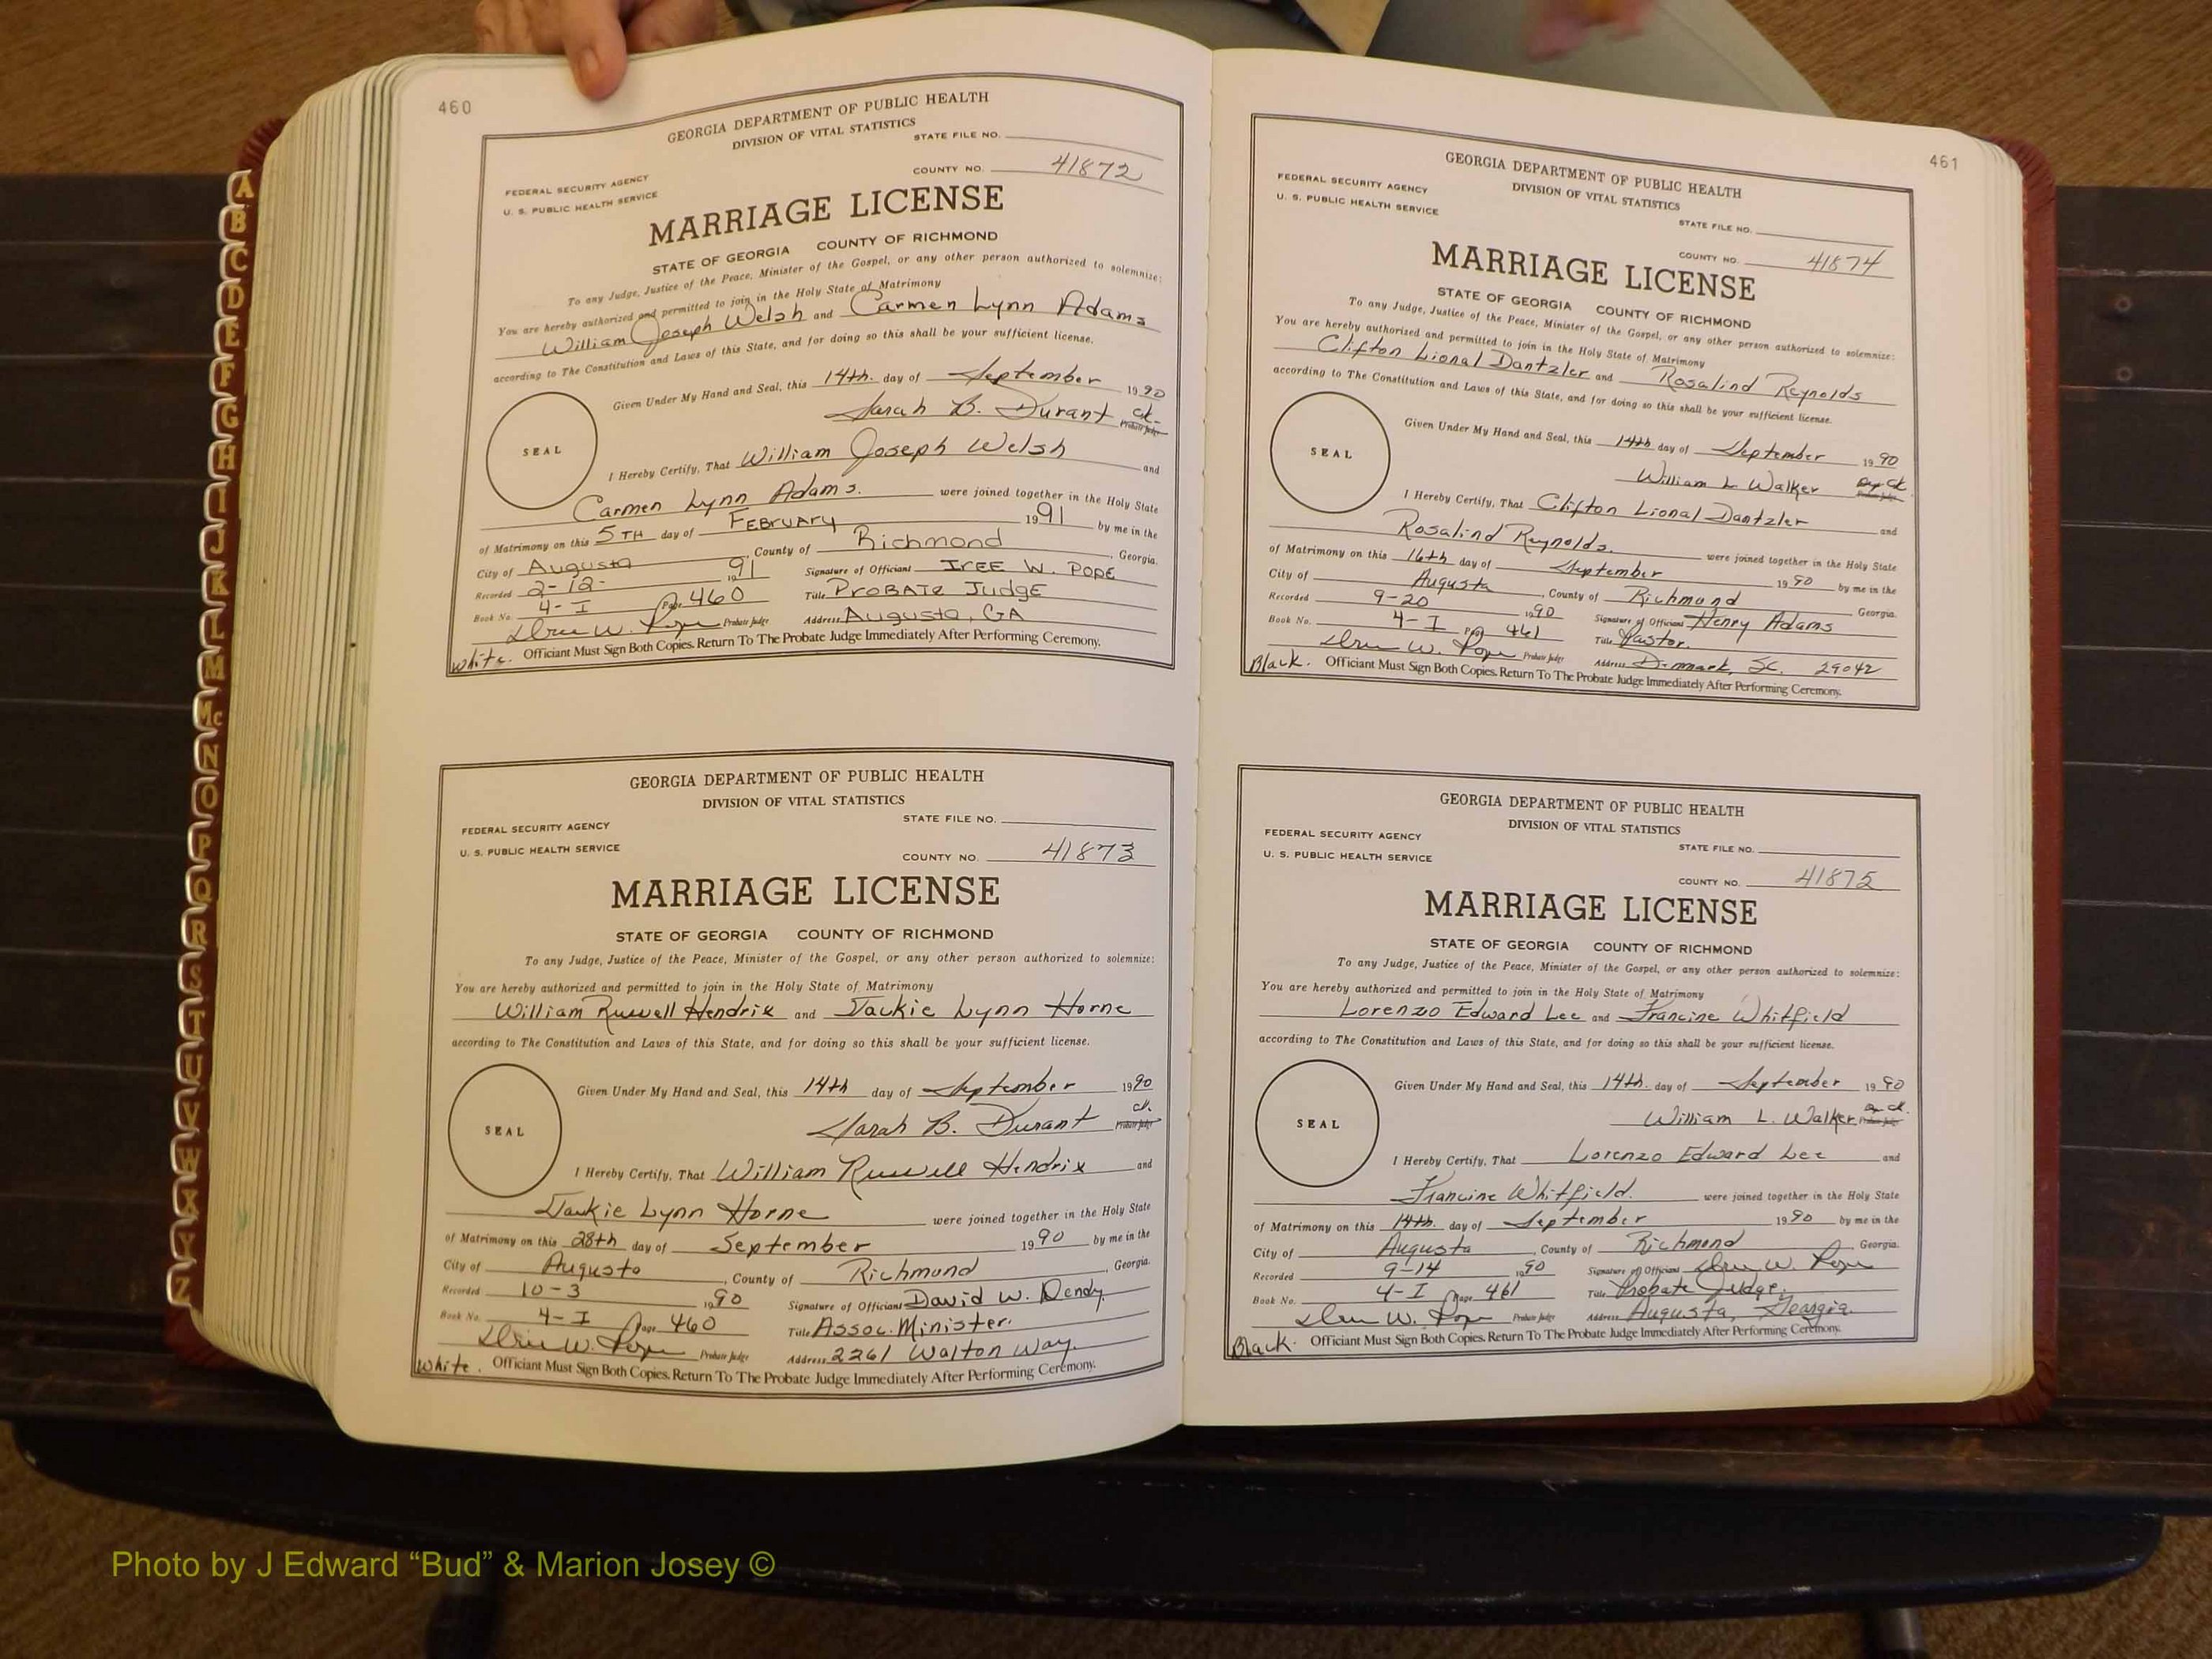 460
GEORGIA DEPARTMENT OF PUBLIC HEALTH
DIVISION OF VITAL STATISTICS
STATE FILE NO.
FEDERAL SECURITY AGENCY
U. S. PUBLIC HEALTH SERVICE
COUNTY NO. 41872
MARRIAGE LICENSE
STATE OF GEORGIA COUNTY OF RICHMOND
To any Judge, Justice of the Peace, Minister of the Gospel, or any other person authorized to solemnize:
You are hereby authorized and permitted to join in the Holy State of Matrimony
William Joseph Welsh and Carmen Lynn Adams
according to The Constitution and Laws of this State, and for doing so this shall be your sufficient license.
Given Under My Hand and Seal, this 14th. day of September 1990
Sarah B. Durant Ck.
Probate Judge
SEAL
I Hereby Certify, That William Joseph Welsh and
Carmen Lynn Adams. were joined together in the Holy State
of Matrimony on this 5TH day of FEBRUARY 1991 by me in the
City of Augusta, County of Richmond, Georgia.
Recorded 2-12- 1991 Signature of Official IREE W. POPE
Book No. 4-I Page 460 Title PROBATE JUDGE
Iree W. Pope Probate Judge Address Augusta, GA
White. Officiant Must Sign Both Copies. Return To The Probate Judge Immediately After Performing Ceremony.
GEORGIA DEPARTMENT OF PUBLIC HEALTH
DIVISION OF VITAL STATISTICS
STATE FILE NO.
FEDERAL SECURITY AGENCY
U. S. PUBLIC HEALTH SERVICE
COUNTY NO. 41873
MARRIAGE LICENSE
STATE OF GEORGIA COUNTY OF RICHMOND
To any Judge, Justice of the Peace, Minister of the Gospel, or any other person authorized to solemnize:
You are hereby authorized and permitted to join in the Holy State of Matrimony
William Russell Hendrix and Jackie Lynn Horne
according to The Constitution and Laws of this State, and for doing so this shall be your sufficient license.
Given Under My Hand and Seal, this 14th day of September 1990
Sarah B. Durant Ck.
Probate Judge
SEAL
I Hereby Certify, That William Russell Hendrix and
Jackie Lynn Horne were joined together in the Holy State
of Matrimony on this 28th day of September 1990 by me in the
City of Augusta, County of Richmond, Georgia.
Recorded 10-3 1990 Signature of Official David W. Dendy
Book No. 4-I Page 460 Title Assoc. Minister.
Iree W. Pope Probate Judge Address 2261 Walton Way.
White. Officiant Must Sign Both Copies. Return To The Probate Judge Immediately After Performing Ceremony.
461
GEORGIA DEPARTMENT OF PUBLIC HEALTH
DIVISION OF VITAL STATISTICS
FEDERAL SECURITY AGENCY
U. S. PUBLIC HEALTH SERVICE
STATE FILE NO.
COUNTY NO. 41874
MARRIAGE LICENSE
STATE OF GEORGIA COUNTY OF RICHMOND
To any Judge, Justice of the Peace, Minister of the Gospel, or any other person authorized to solemnize:
You are hereby authorized and permitted to join in the Holy State of Matrimony
Clifton Lional Dantzler and Rosalind Reynolds
according to The Constitution and Laws of this State, and for doing so this shall be your sufficient license.
Given Under My Hand and Seal, this 14th day of September 1990
William L Walker Dep Ck.
Probate Judge
SEAL
I Hereby Certify, That Clifton Lional Dantzler and
Rosalind Reynolds. were joined together in the Holy State
of Matrimony on this 16th day of September 1990 by me in the
City of Augusta, County of Richmond Georgia.
Recorded 9-20 1990 Signature of Official Henry Adams
Book No. 4-I Page 461 Title Pastor.
Iree W. Pope Probate Judge Address Denmark, SC. 29042
Black. Officiant Must Sign Both Copies. Return To The Probate Judge Immediately After Performing Ceremony.
GEORGIA DEPARTMENT OF PUBLIC HEALTH
DIVISION OF VITAL STATISTICS
FEDERAL SECURITY AGENCY
U. S. PUBLIC HEALTH SERVICE
STATE FILE NO.
COUNTY NO. 41875
MARRIAGE LICENSE
STATE OF GEORGIA COUNTY OF RICHMOND
To any Judge, Justice of the Peace, Minister of the Gospel, or any other person authorized to solemnize:
You are hereby authorized and permitted to join in the Holy State of Matrimony
Lorenzo Edward Lee and Francine Whitfield
according to The Constitution and Laws of this State, and for doing so this shall be your sufficient license.
Given Under My Hand and Seal, this 14th. day of September 1990
William L. Walker Dep Ck.
Probate Judge
SEAL
I Hereby Certify, That Lorenzo Edward Lee and
Francine Whitfield. were joined together in the Holy State
of Matrimony on this 14th. day of September 1990 by me in the
City of Augusta, County of Richmond, Georgia.
Recorded 9-14 1990 Signature of Official Iree W. Pope
Book No. 4-I Page 461 Title Probate Judge.
Iree W. Pope Probate Judge Address Augusta, Georgia.
Black. Officiant Must Sign Both Copies. Return To The Probate Judge Immediately After Performing Ceremony.
A
B
C
D
E
F
G
H
I
J
K
L
M
Mc
N
O
P
Q
R
S
T
U
V
W
X
Y
Z
Photo by J Edward “Bud” & Marion Josey ©